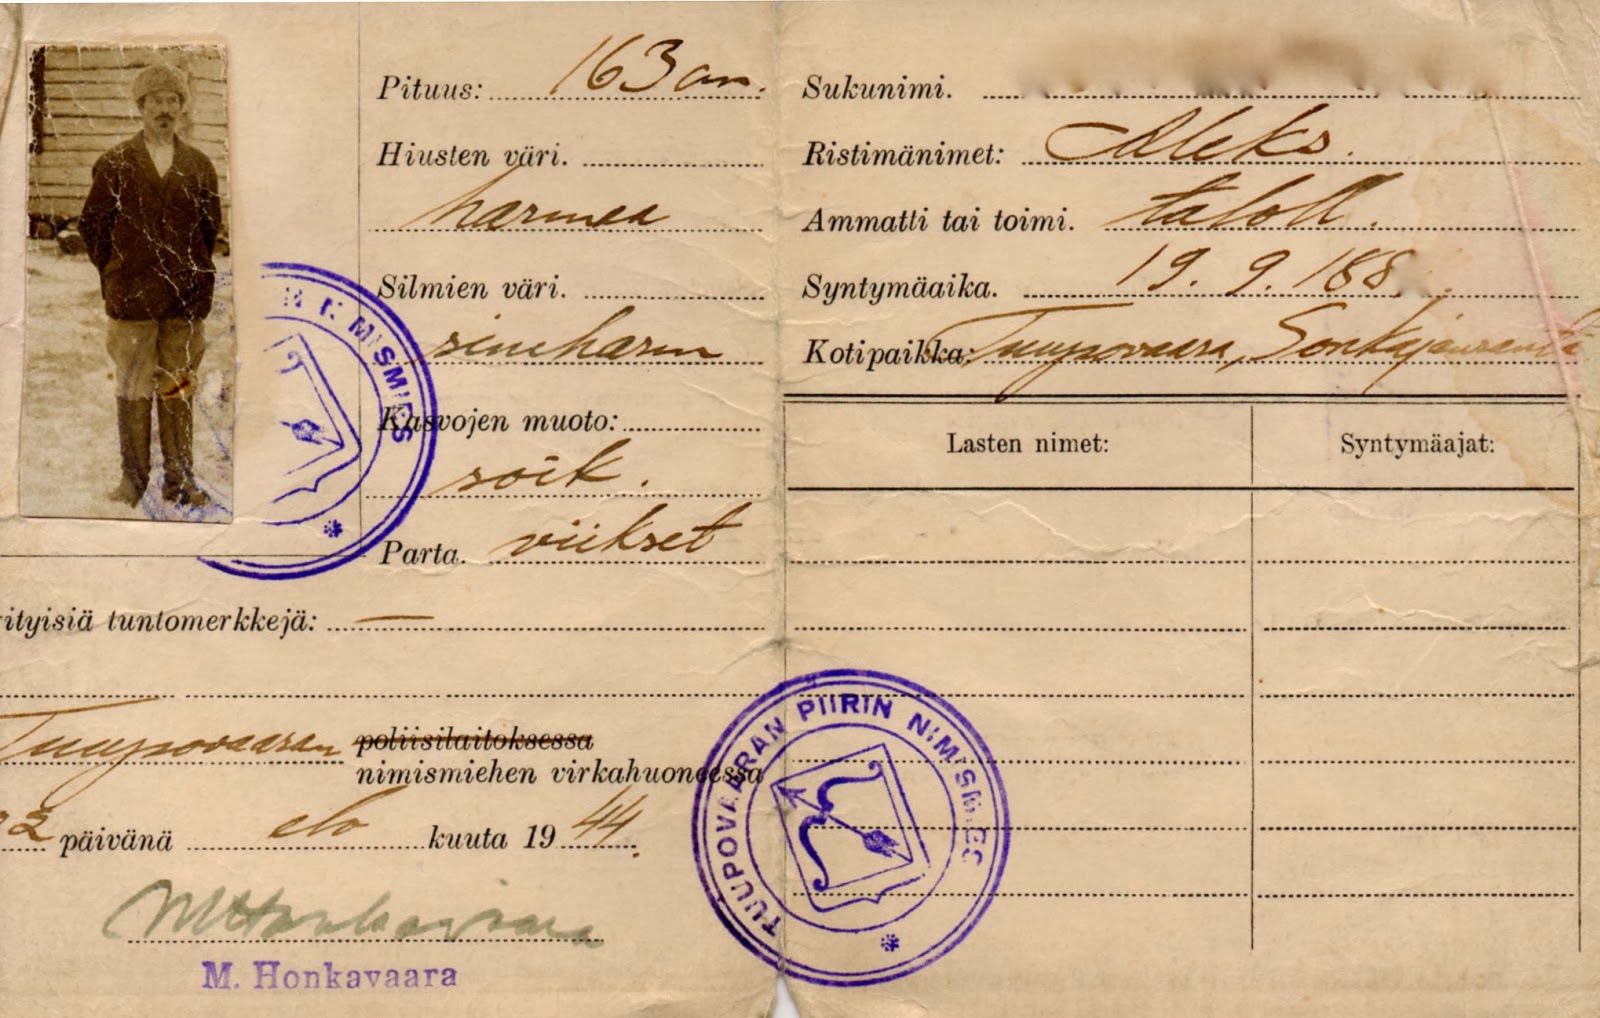 Pituus: 163 cm.
Hiusten väri.
harmea
Silmien väri.
sineharm
Kasvojen muoto:
soik.
Parta. viikset
ityisiä tuntomerkkejä: —
Tuupovaaran poliisilaitoksessa
nimismiehen virkahuoneessa
2 päivänä elo kuuta 1944.
M Honkavaara
M. Honkavaara
NIMISMIES
Sukunimi.
Ristimänimet: Aleks.
Ammatti tai toimi. taloll.
Syntymäaika. 19. 9. 188
Kotipaikka: Tuupovaara, Sonkajanranta
Lasten nimet: Syntymäajat:
TUUPOVAARAN PIIRIN NIMISMIES